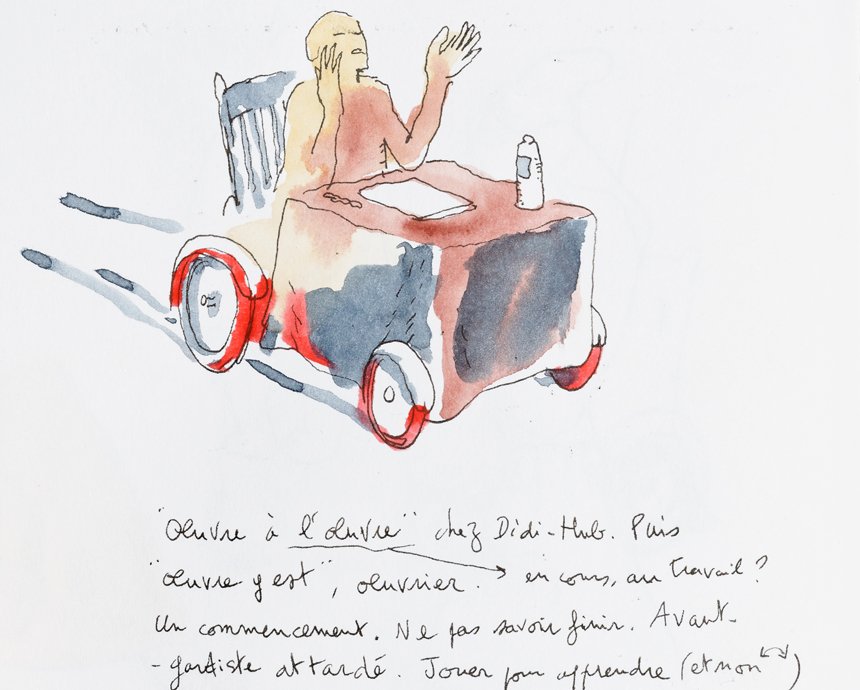 "Œuvre à l'œuvre" chez Didi-Hub. Puis
"œuvre y est", œuvrier. → en cours, au travail ?
Un commencement. Ne pas savoir finir. Avant-
-gardiste attardé. Jouer pour apprendre (et non ↔)